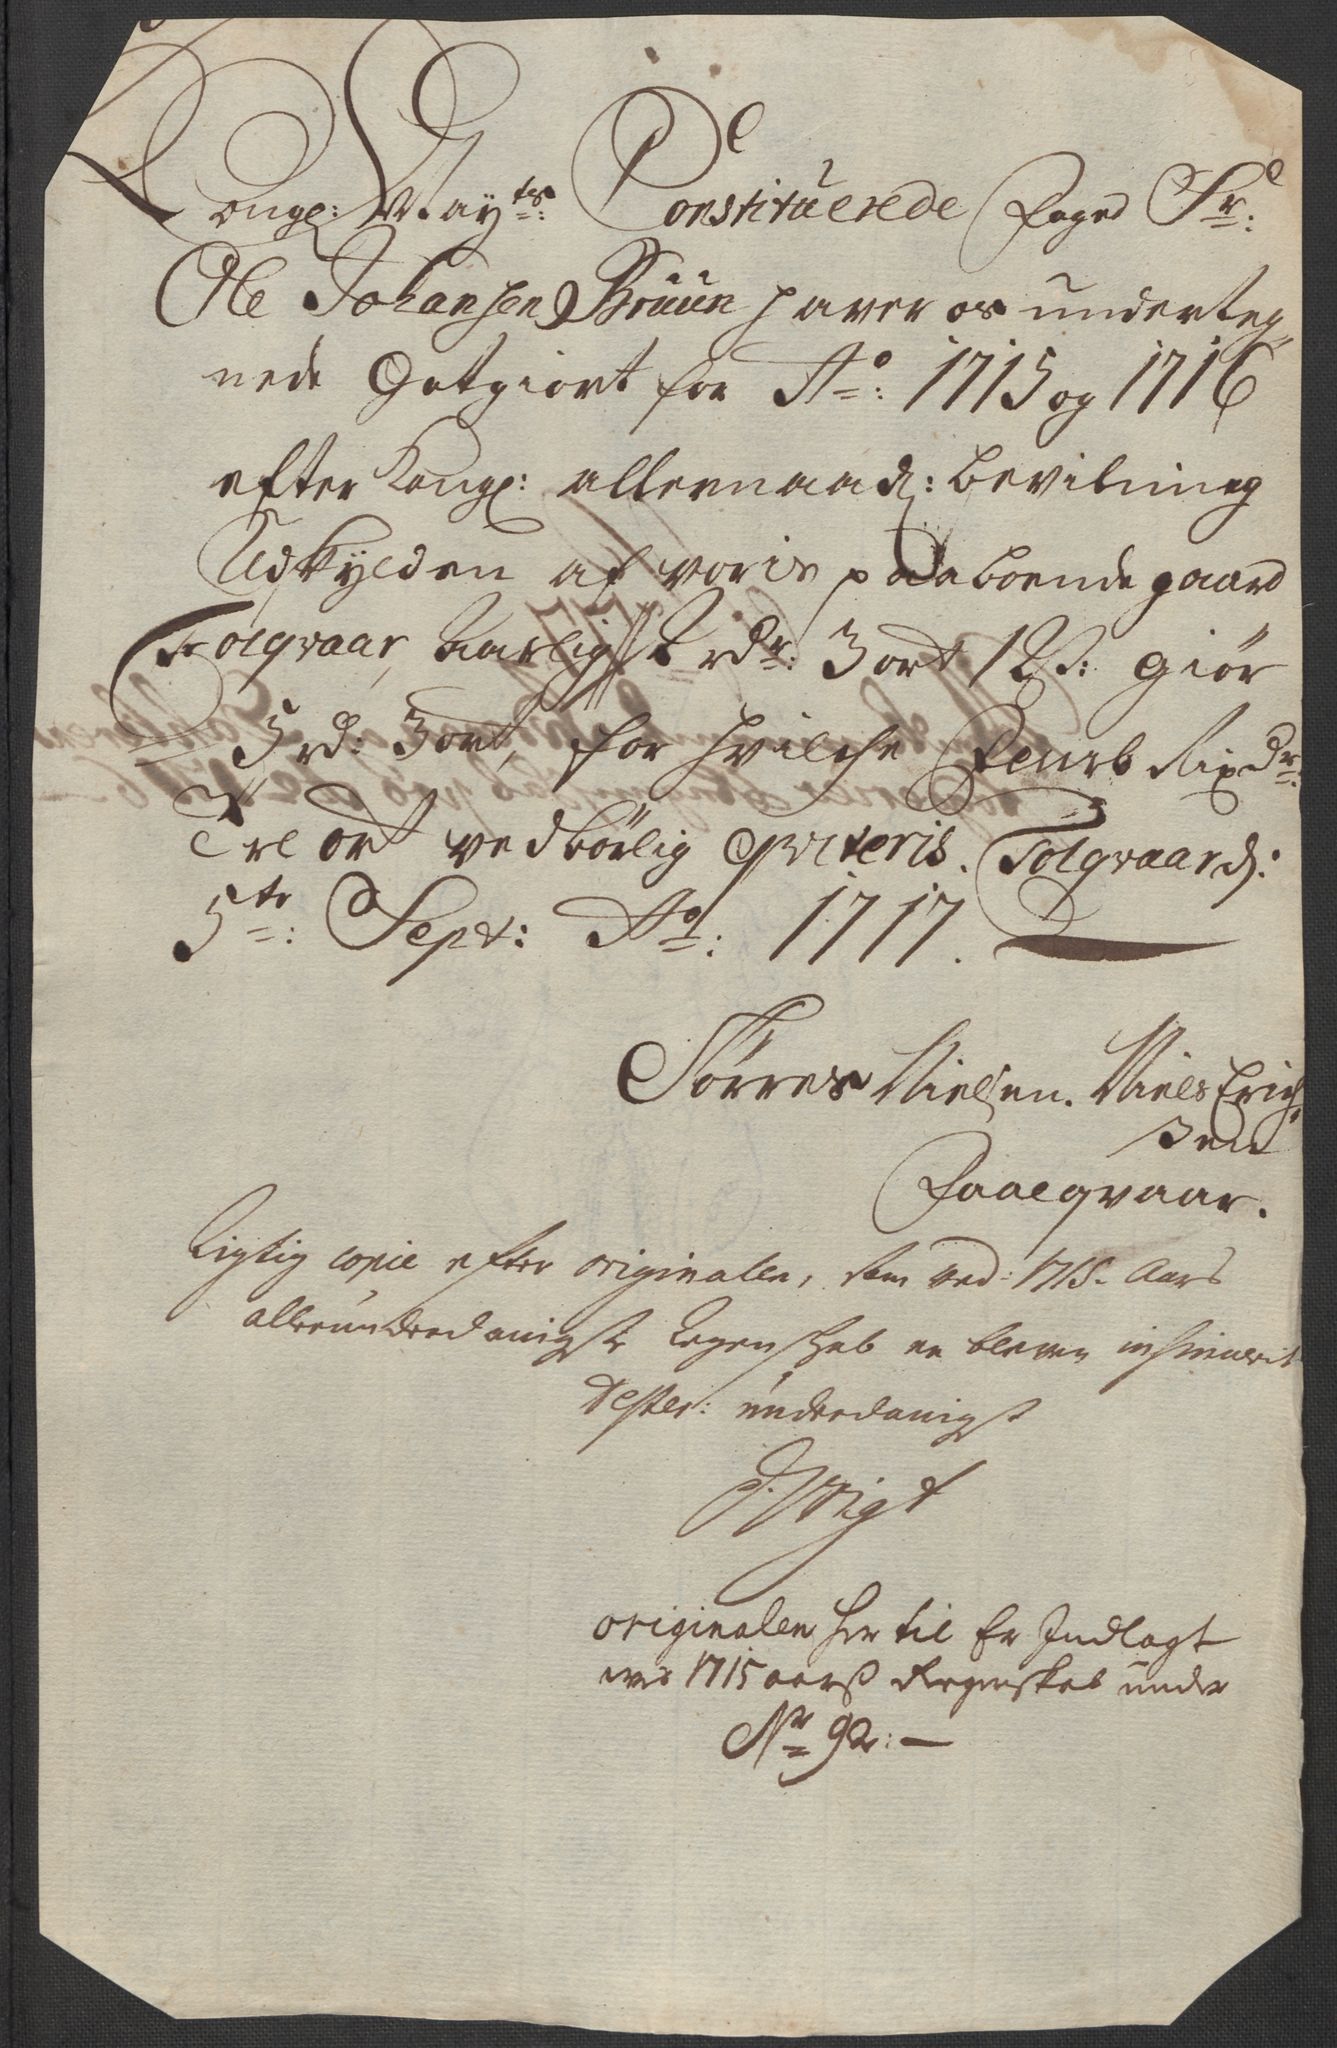 Kongl: Mayts: Constituerede Foged Sr:
Ole Johansen Bruun haver os underteg-
nede Gotgiort for Ao: 1715 og 1716
efter Kongl: allernaad: bevilning
Udskylden af voris paaboende gaard
Folgvaar, Aarlig 2 rdr: 3 ort 12 s: giør
5 rd: 3 ort, for hvilche Rixdr:
Tre ort vedbørlig qviteris. Folgvaar d:
5te: Sept: Ao: 1717.
Tørres Nielsen. Niels Erich-
sen
Faaegvaar.
Rigtig copie efter originalen, som ved 1715. Aars
allerunderdanigste Regenskab er bleven insinuerit
tester: underdanigst
Wigt
originalen her til Er Indlagt
ved 1715 aarß Regenskab under
No 92: —